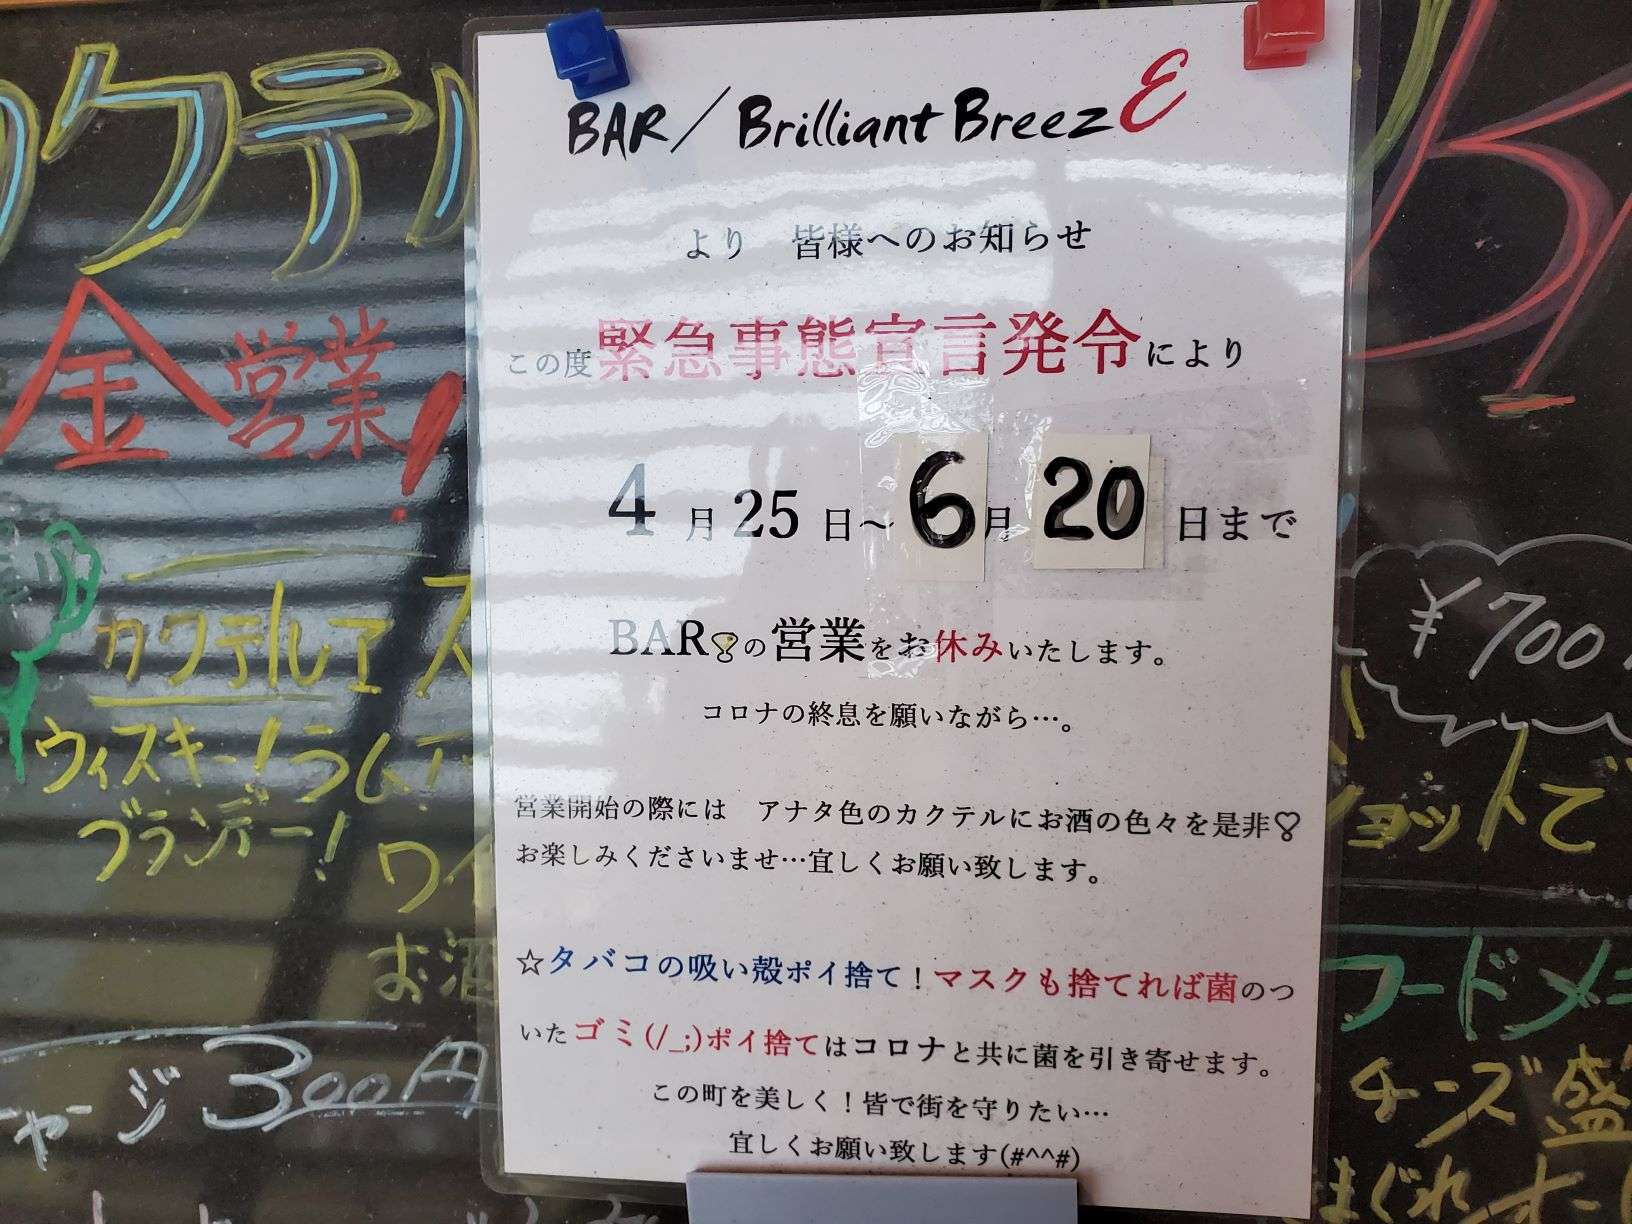 BAR/Brilliant BreezE
より 皆様へのお知らせ
この度緊急事態宣言発令により
4月25日～6月20日まで
BARの営業をお休みいたします。
コロナの終息を願いながら…。
営業開始の際には アナタ色のカクテルにお酒の色々を是非♡
お楽しみくださいませ…宜しくお願い致します。
☆タバコの吸い殻ポイ捨て！マスクも捨てれば菌のつ
いたゴミ(/_;)ポイ捨てはコロナと共に菌を引き寄せます。
この町を美しく！皆で街を守りたい…
宜しくお願い致します(#^^#)
カクテル
金営業！
カクテル
ウィスキー！ラム
ブランデー！
ワイ
お酒
チャージ 300円
K
¥700
ショットで
フードメニ
チーズ盛
まぐれオー